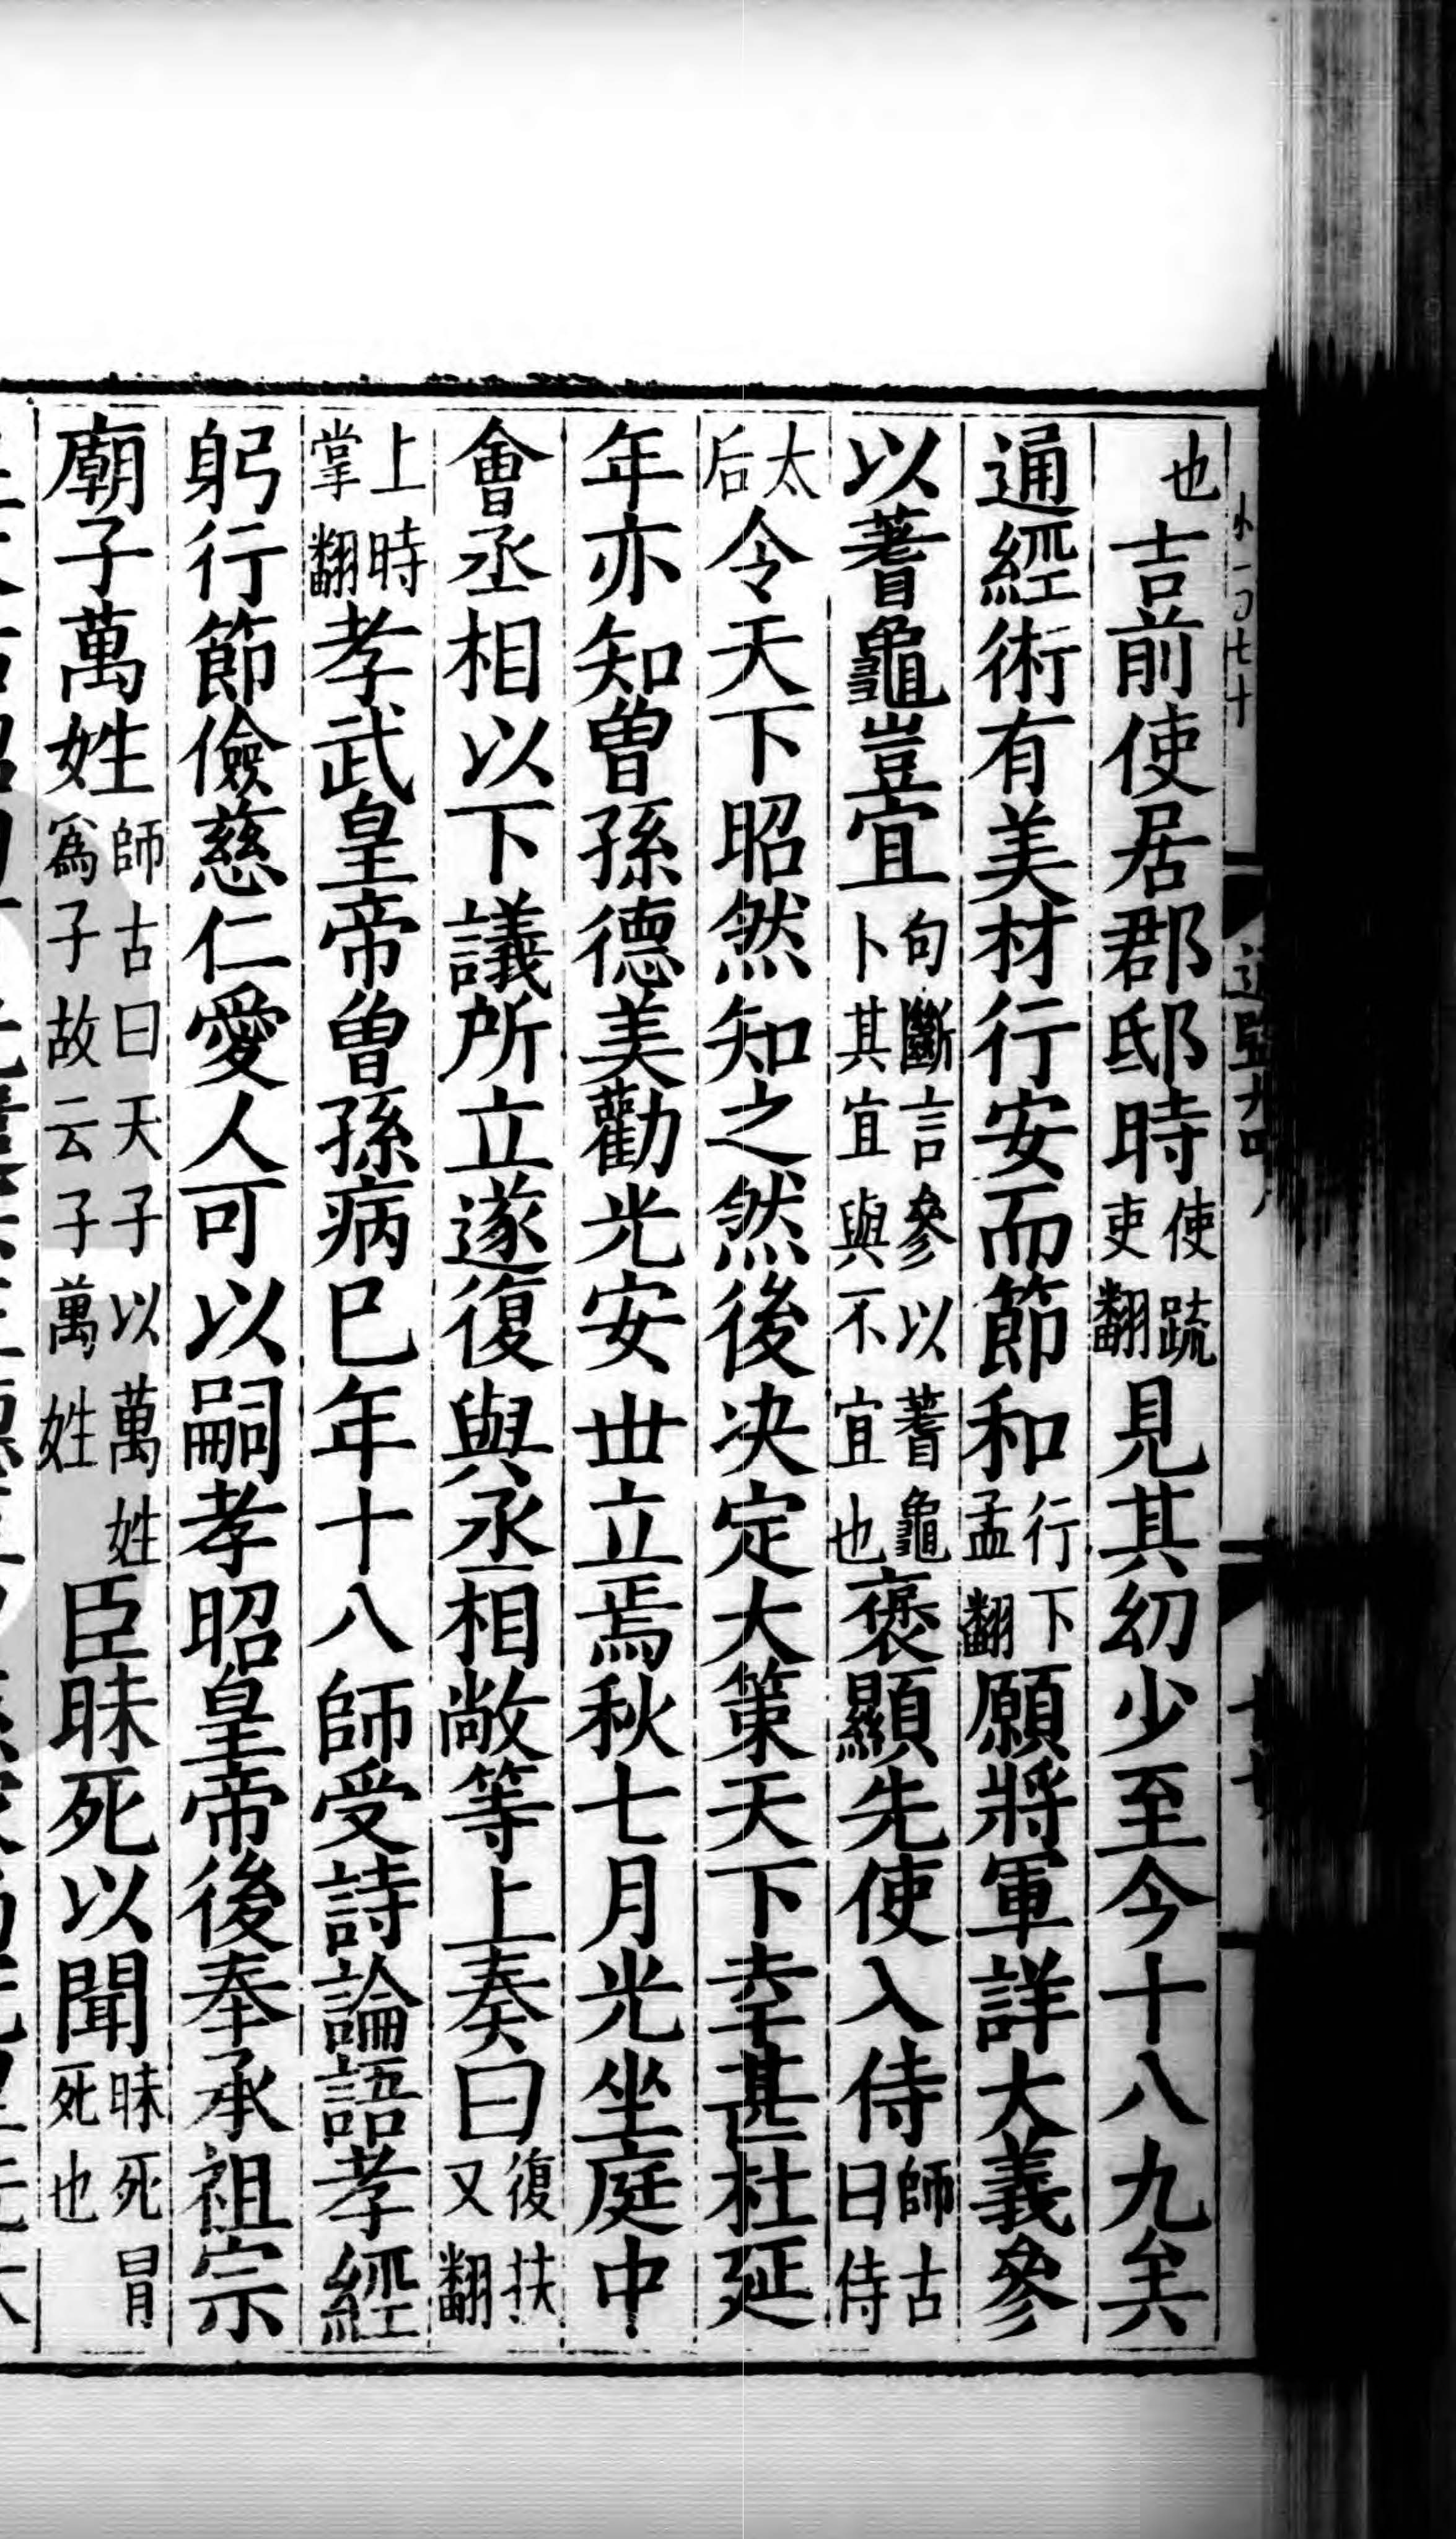 也吉前使居郡邸時使䟽吏翻見其㓜少至今十八九矣
通經術有美材行安而節和行下孟翻願將軍詳大義參
以蓍龜豈宜句斷言參以蓍龜卜其宜與不宜也褒顯先使入侍師古曰侍
太后令天下昭然知之然後决定大策天下幸甚杜延
年亦知曾孫德美勸光安丗立焉秋七月光坐庭中
會丞相以下議所立遂復與丞相敞等上奏曰復扶又翻
上時掌翻孝武皇帝曾孫病已年十八師受詩論語孝經
躬行節儉慈仁愛人可以嗣孝昭皇帝後奉承祖宗
廟子萬姓師古曰天子以萬姓爲子故云子萬姓臣昧死以聞昧死冒死也